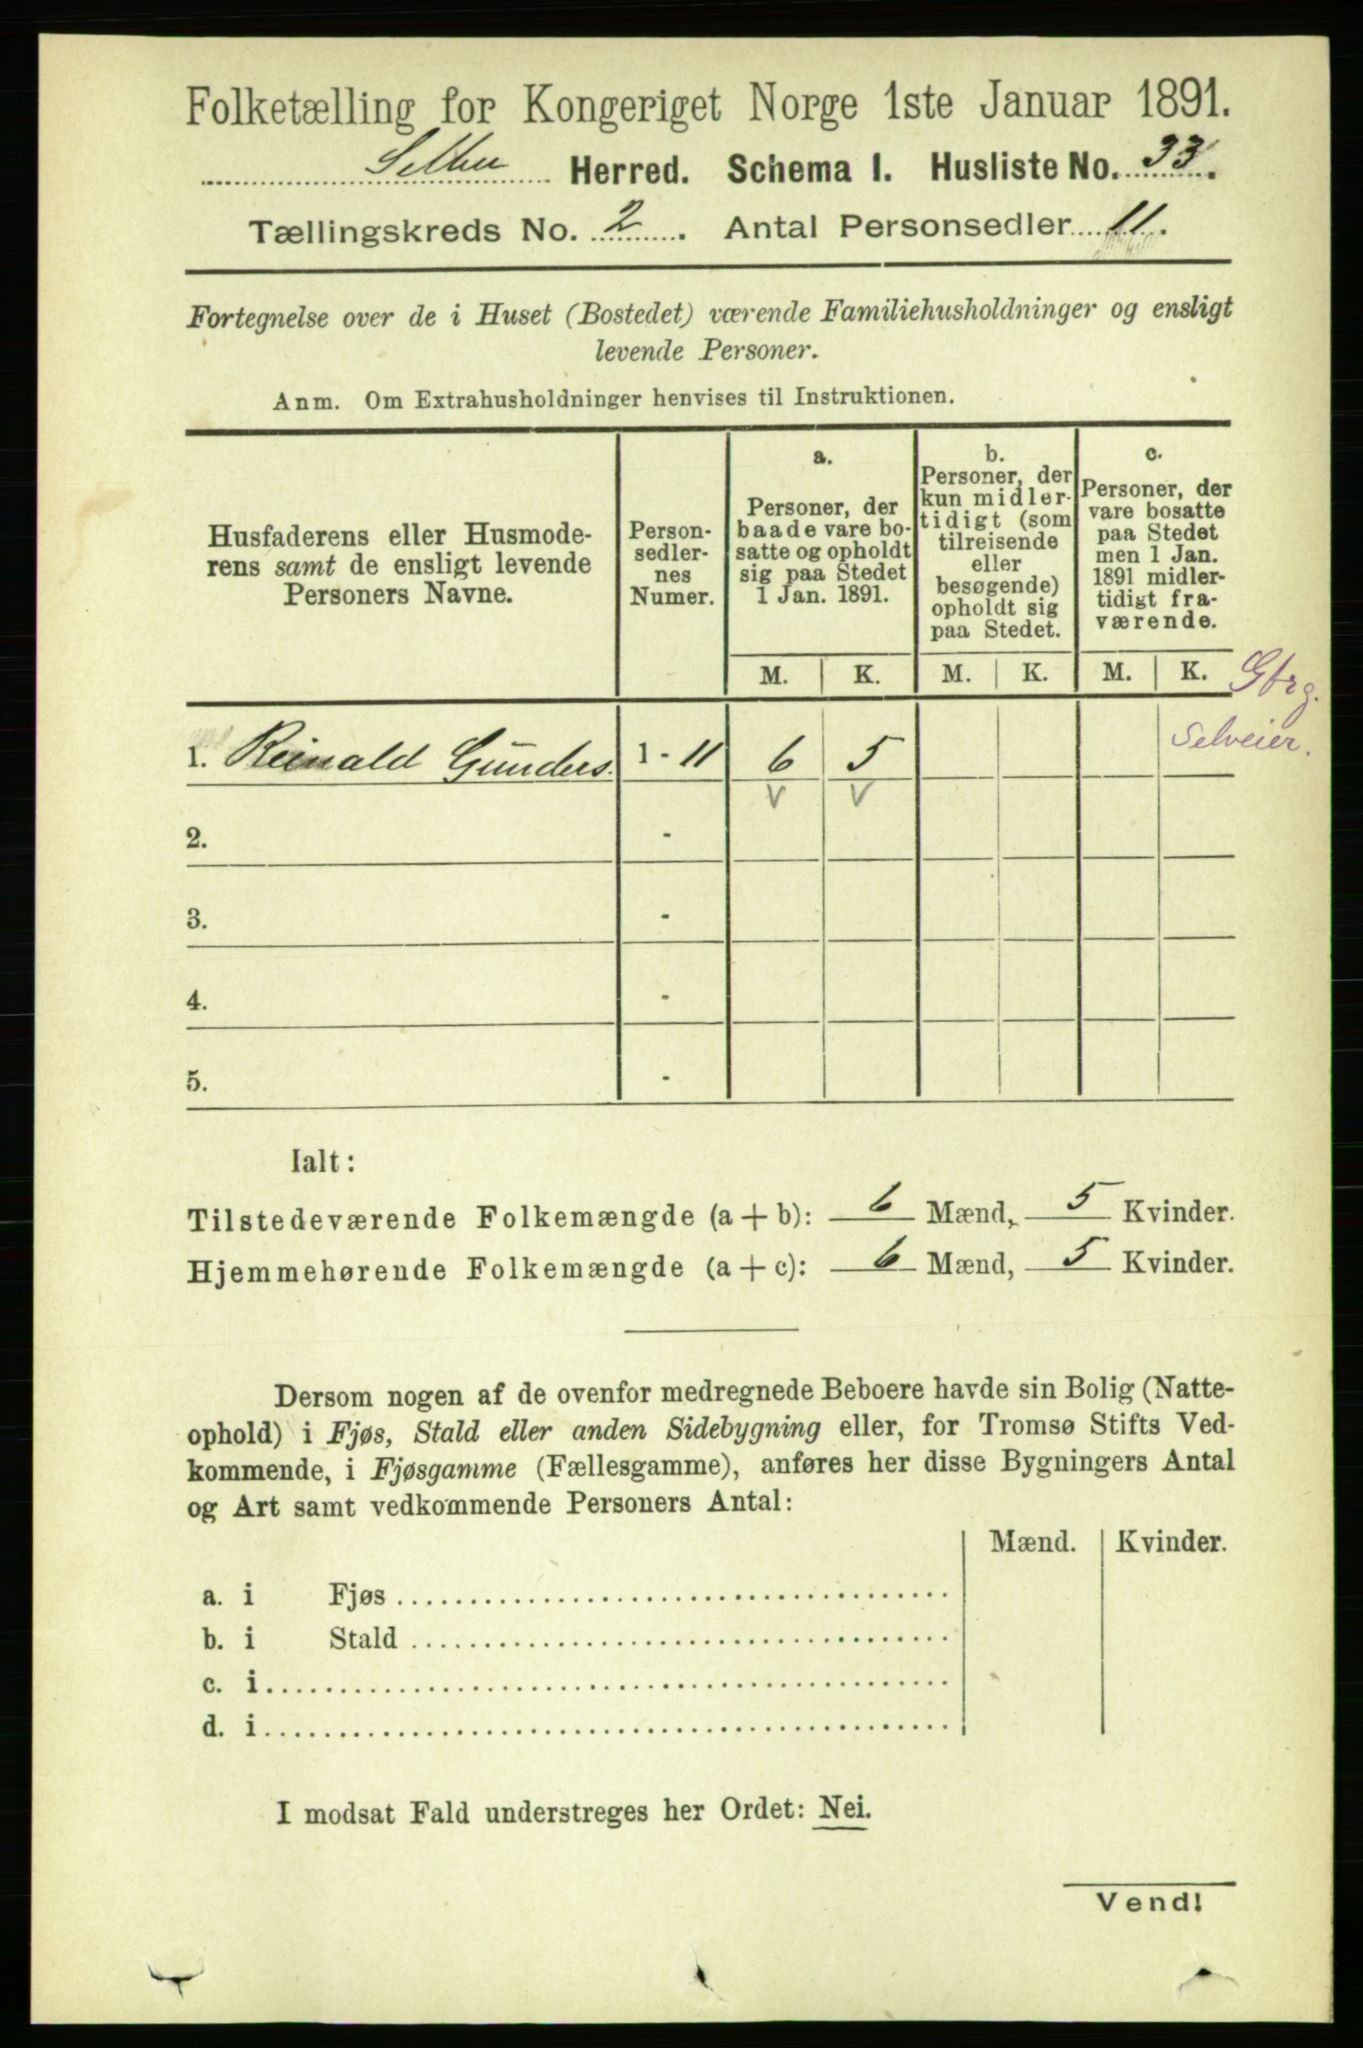 Folketælling for Kongeriget Norge 1ste Januar 1891.
Selbu Herred. Schema I. Husliste No. 33.
Tællingskreds No. 2. Antal Personsedler 11.
Fortegnelse over de i Huset (Bostedet) værende Familiehusholdninger og ensligt
levende Personer.
Anm. Om Extrahusholdninger henvises til Instruktionen.
Husfaderens eller Husmode-
rens samt de ensligt levende
Personers Navne.
Person-
sedler-
nes
Numer.
a.
Personer, der
baade vare bo-
satte og opholdt
sig paa Stedet
1 Jan. 1891.
b.
Personer, der
kun midler-
tidigt (som
tilreisende
eller
besøgende)
opholdt sig
paa Stedet.
c.
Personer, der
vare bosatte
paa Stedet
men 1 Jan.
1891 midler-
tidigt fra-
værende.
M. K. M. K. M. K. Gbrg.
Selveier.
1. Reinald Gunders. 1 - 11 6 5
v v
2. -
3. -
4. -
5. -
Ialt:
Tilstedeværende Folkemængde (a + b): 6 Mænd, 5 Kvinder.
Hjemmehørende Folkemængde (a + c): 6 Mænd, 5 Kvinder.
Dersom nogen af de ovenfor medregnede Beboere havde sin Bolig (Natte-
ophold) i Fjøs, Stald eller anden Sidebygning eller, for Tromsø Stifts Ved-
kommende, i Fjøsgamme (Fællesgamme), anføres her disse Bygningers Antal
og Art samt vedkommende Personers Antal:
Mænd. Kvinder.
a. i Fjøs
b. i Stald
c. i
d. i
I modsat Fald understreges her Ordet: Nei.
Vend!